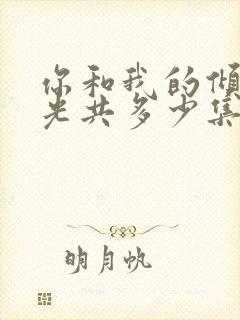 你和我的倾
光共多少集
明月帆